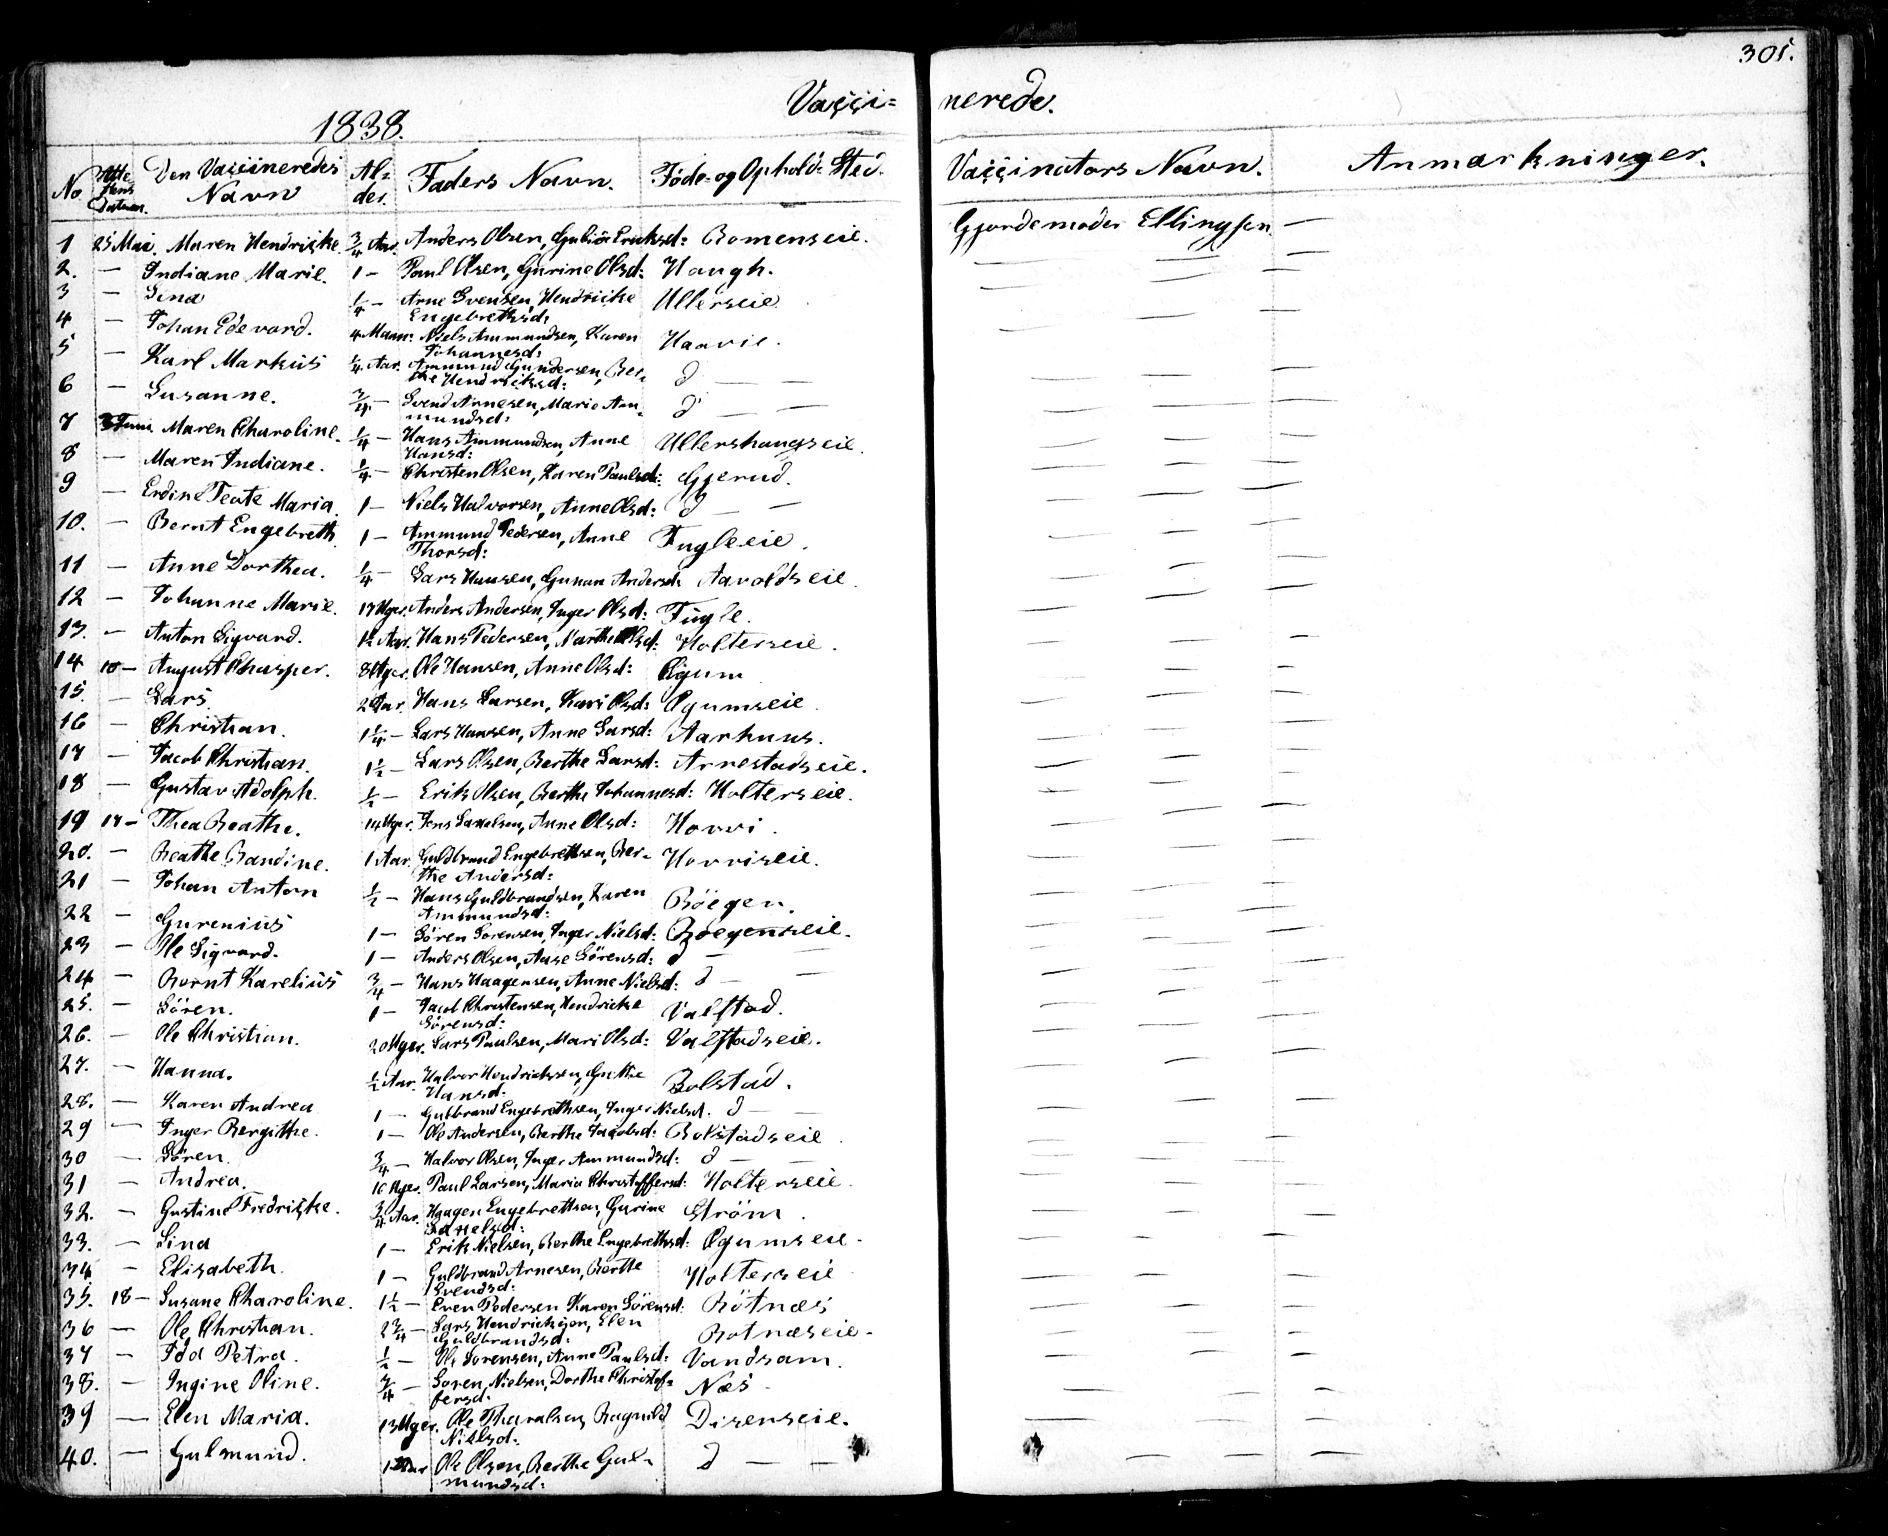 305.
Vaççi= nerede.
1838.
No Atte stens Datum. Den Vaççineredes Navn Al= der. Faders Navn. Føde- og Ophold: Sted. Vaççinators Navn. Anmærkninger.
1 25 Mai. Maren Hendriçke. 3/4 Aar. Anders Olsen, Ericksd: Romenseie. Gjordemoder Ellingsen —
2. — Indiane Marie. 1 — Paul Olsen, Gurine Olsd: Haugh. — — —
3 — Lina 1/4 — Arne Svensen, Hendricke Engebrethsd: Ullerseie — — —
4 — Johan Edevard. 4 Maan: Niels Ammundsen, Karen Johannesd: Haavie. — — —
5 — Karl Markus 1/4 Aar. Ammund Gundersen, Ber= the Hendriksd: d — — — — —
6 — Susanne. 3/4 — Svend Arnesen, Marie Am= mundsd: d — — — — —
7 3 Juni Maren Charoline. 1/4 — Hans Ammundsen, Anne Hansd: Ullershaugseie. — — —
8 — Maren Indiane. 1/4 — Christen Olsen, Karen Paulsd: Gjerud. — — —
9 — Erdine Maria. 1 — Niels Halvorsen, Anne Olsd: d — — — — —
10. — Bernt Engebreth. 1 — Ammund Pedersen, Anne Thorsd: Fugleeie. — — —
11 — Anne Dorthea. 1/4 — Lars Hansen, Gunan Andersd: Aavoldseie. — — —
12 — Johanne Marie. 17 Uger. Anders Andersen, Inger Olsd: Fugle. — — —
13. — Anton Sigvard. 1 1/2 Aar. Hans Pedersen, Marthe Olsd: Holterseie. — — —
14 10 — August Chasper. 8 Uger. Ole Hansen, Anne Olsd: Ogum — — —
15. — Lars. 2 Aar. Hans Larsen, Kari Olsd: Ogumseie. — — —
16 — Christian. 1 1/4 — Lars Hansen, Anne Larsd: Aarhuus. — — —
17 — Jacob Christian. 1 1/2 — Lars Olsen, Berthe Larsd: Arnestadseie. — — —
18 — Gustav Adolph. 1/2 — Erik Olsen, Berthe Johannesd: Holterseie. — — —
19 17 — Thea Beathe. 14 Uger. Jens Olsd: Hovvi. — — —
20. — Beathe Bandine. 1 Aar. Guldbrand Engebrethsen, Ber= the Andersd: Hovviseie. — — —
21 — Johan Anton 1/2 — Hans Guldbrandsen, Karen Ammundsd: Böegen. — — —
22 — Gurenius 1 — Sören Sorensen, Inger Nielsd: Böegenseie. — — —
23 — Ole Sigvard. 1 — Anders Olsen, Aase Sörensd: d — — — — —
24 — Bernt Karelius 3/4 — Hans Haagensen, Anne Nielsd: d — — — — —
25. — Sören. 1 — Jacob Christensen, Hendricke Sörensd: Valstad. — — —
26. — Ole Christian. 20 Uger. Lars Paulsen, Mari Olsd: Valstadseie. — — —
27. — Hanna. 1/2 Aar. Halvor Hendricksen, Hansd: Bolstad. — — —
28. — Karen Andrea 1 — Gulbrand Engebrethsen, Inger Nielsd. d — — — — —
29 — Inger Bergithe. 1 — Ole Andersen, Berthe Jacobsd: Bolstadseie — — —
30 — Sören. 3/4 — Halvor Olsen, Inger Ammundsd: d — — — — —
31 — Andrea. 16 Uger. Paul Larsen, Maria Christoffersd: Holterseie. — — —
32. — Gustine Fredriçke. 3/4 Aar. Haagen Engebrethsen, Gurine Ström. — — —
33. — Lina 1 — Erik Nielsen, Berthe Engebrethsd: Ogumseie. — — —
34 — Elisabeth. 1 — Guldbrand Arnesen, Berthe Svendsd: Holterseie — — —
35. 18 — Susane Charoline. 1 1/2 — Even Pedersen Karen Sörensd: Rötnæs — — —
36 — Ole Christian. 2 3/4 — Lars Hendricksen, Elen Guldbrandsd: Rotnæseie. — — —
37 — Ida Petra. 1/2 — Ole Sorensen, Anne Paulsd: Vandsam. — — —
38. — Ingine Oline. 3/4 — Soren Nielsen, Dorthe Christof= fersd. Næs — — —
39 — Elen Maria. 13 Uger. Ole Tharalsen, Ragnild Nielsd. Disenseie. — — —
40. — Gulmund. Aar Ole Olsen, Berthe Gul= mundsd: d — — — — —